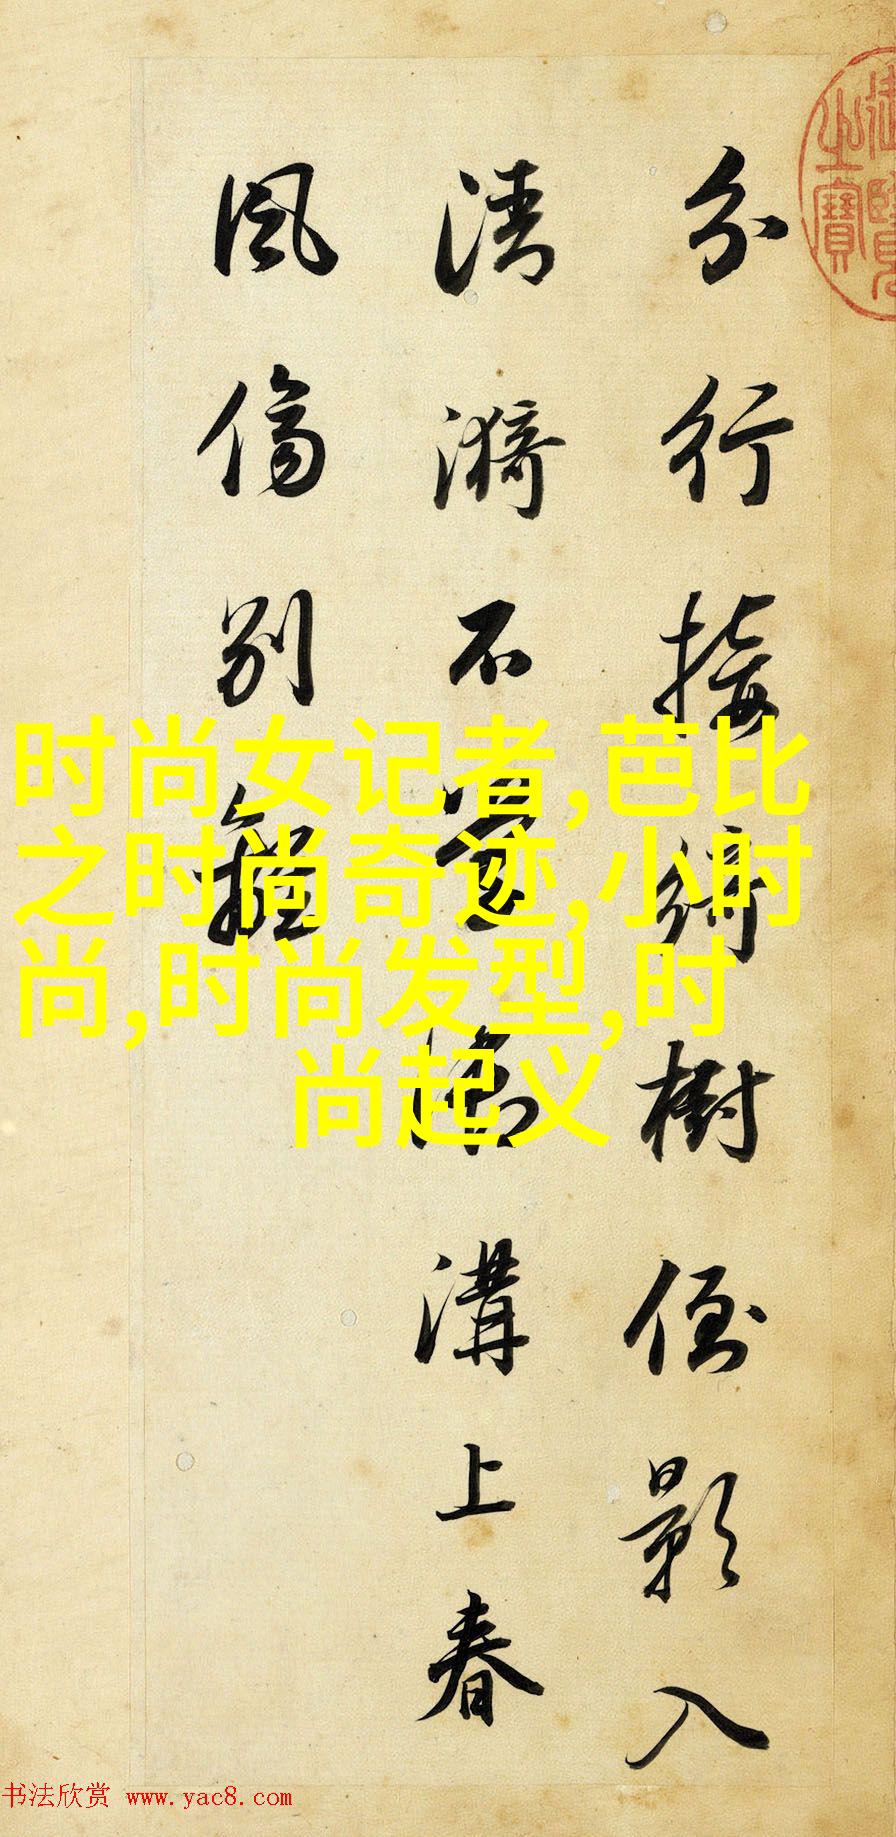 御覽
之寶
分行接綺樹倒影入
清漪不溝上春
風傷別離
时尚女记者,芭比
之时尚奇迹,小时
尚,时尚发型,时
尚起义
书法欣赏 www.yac8.com